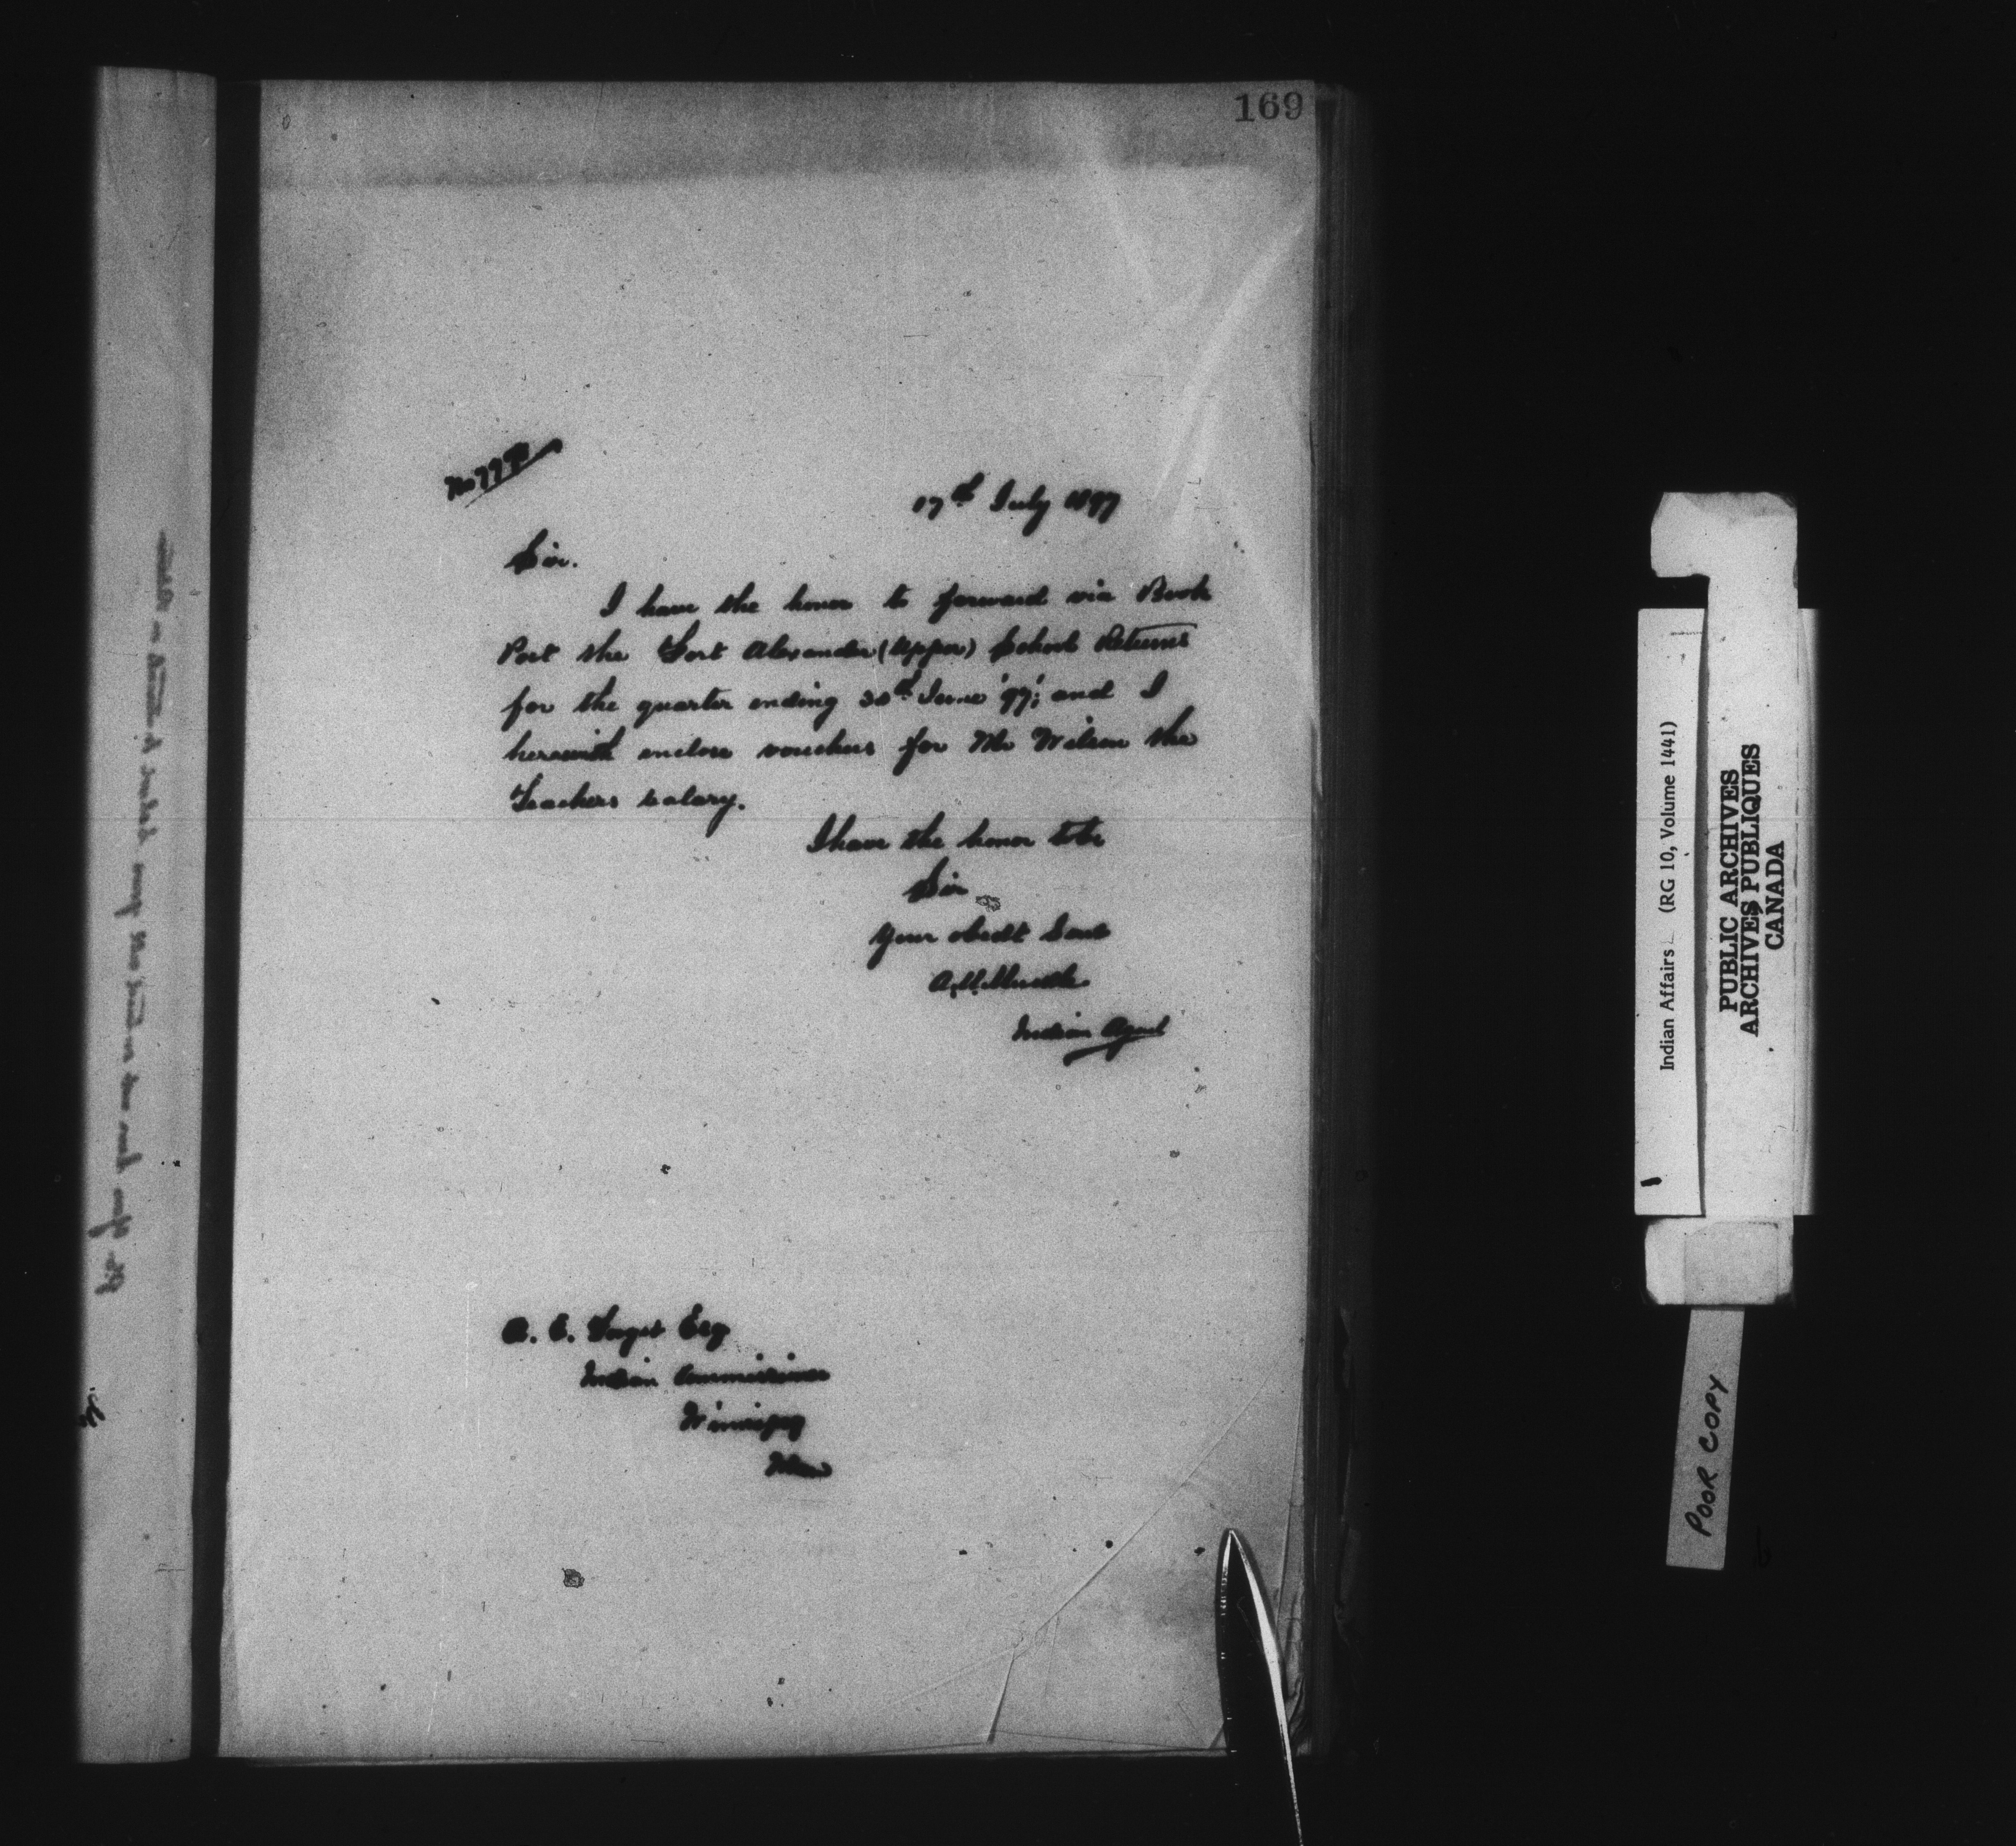 169
17th July 1897
Sir.
I have the honor to forward via Book
Post the Fort Alexander (Upper) School Returns
for the quarter ending 30th June '97; and I
herewith enclose vouchers for Mr Wilson the
Teachers salary.
I have the honor to be
Sir
Your obedt Servt
Indian Agent
A. E. Forget Esq
Indian Commissioner
Winnipeg
Man
Indian Affairs (RG 10, Volume 1441)
PUBLIC ARCHIVES
ARCHIVES PUBLIQUES
CANADA
POOR COPY